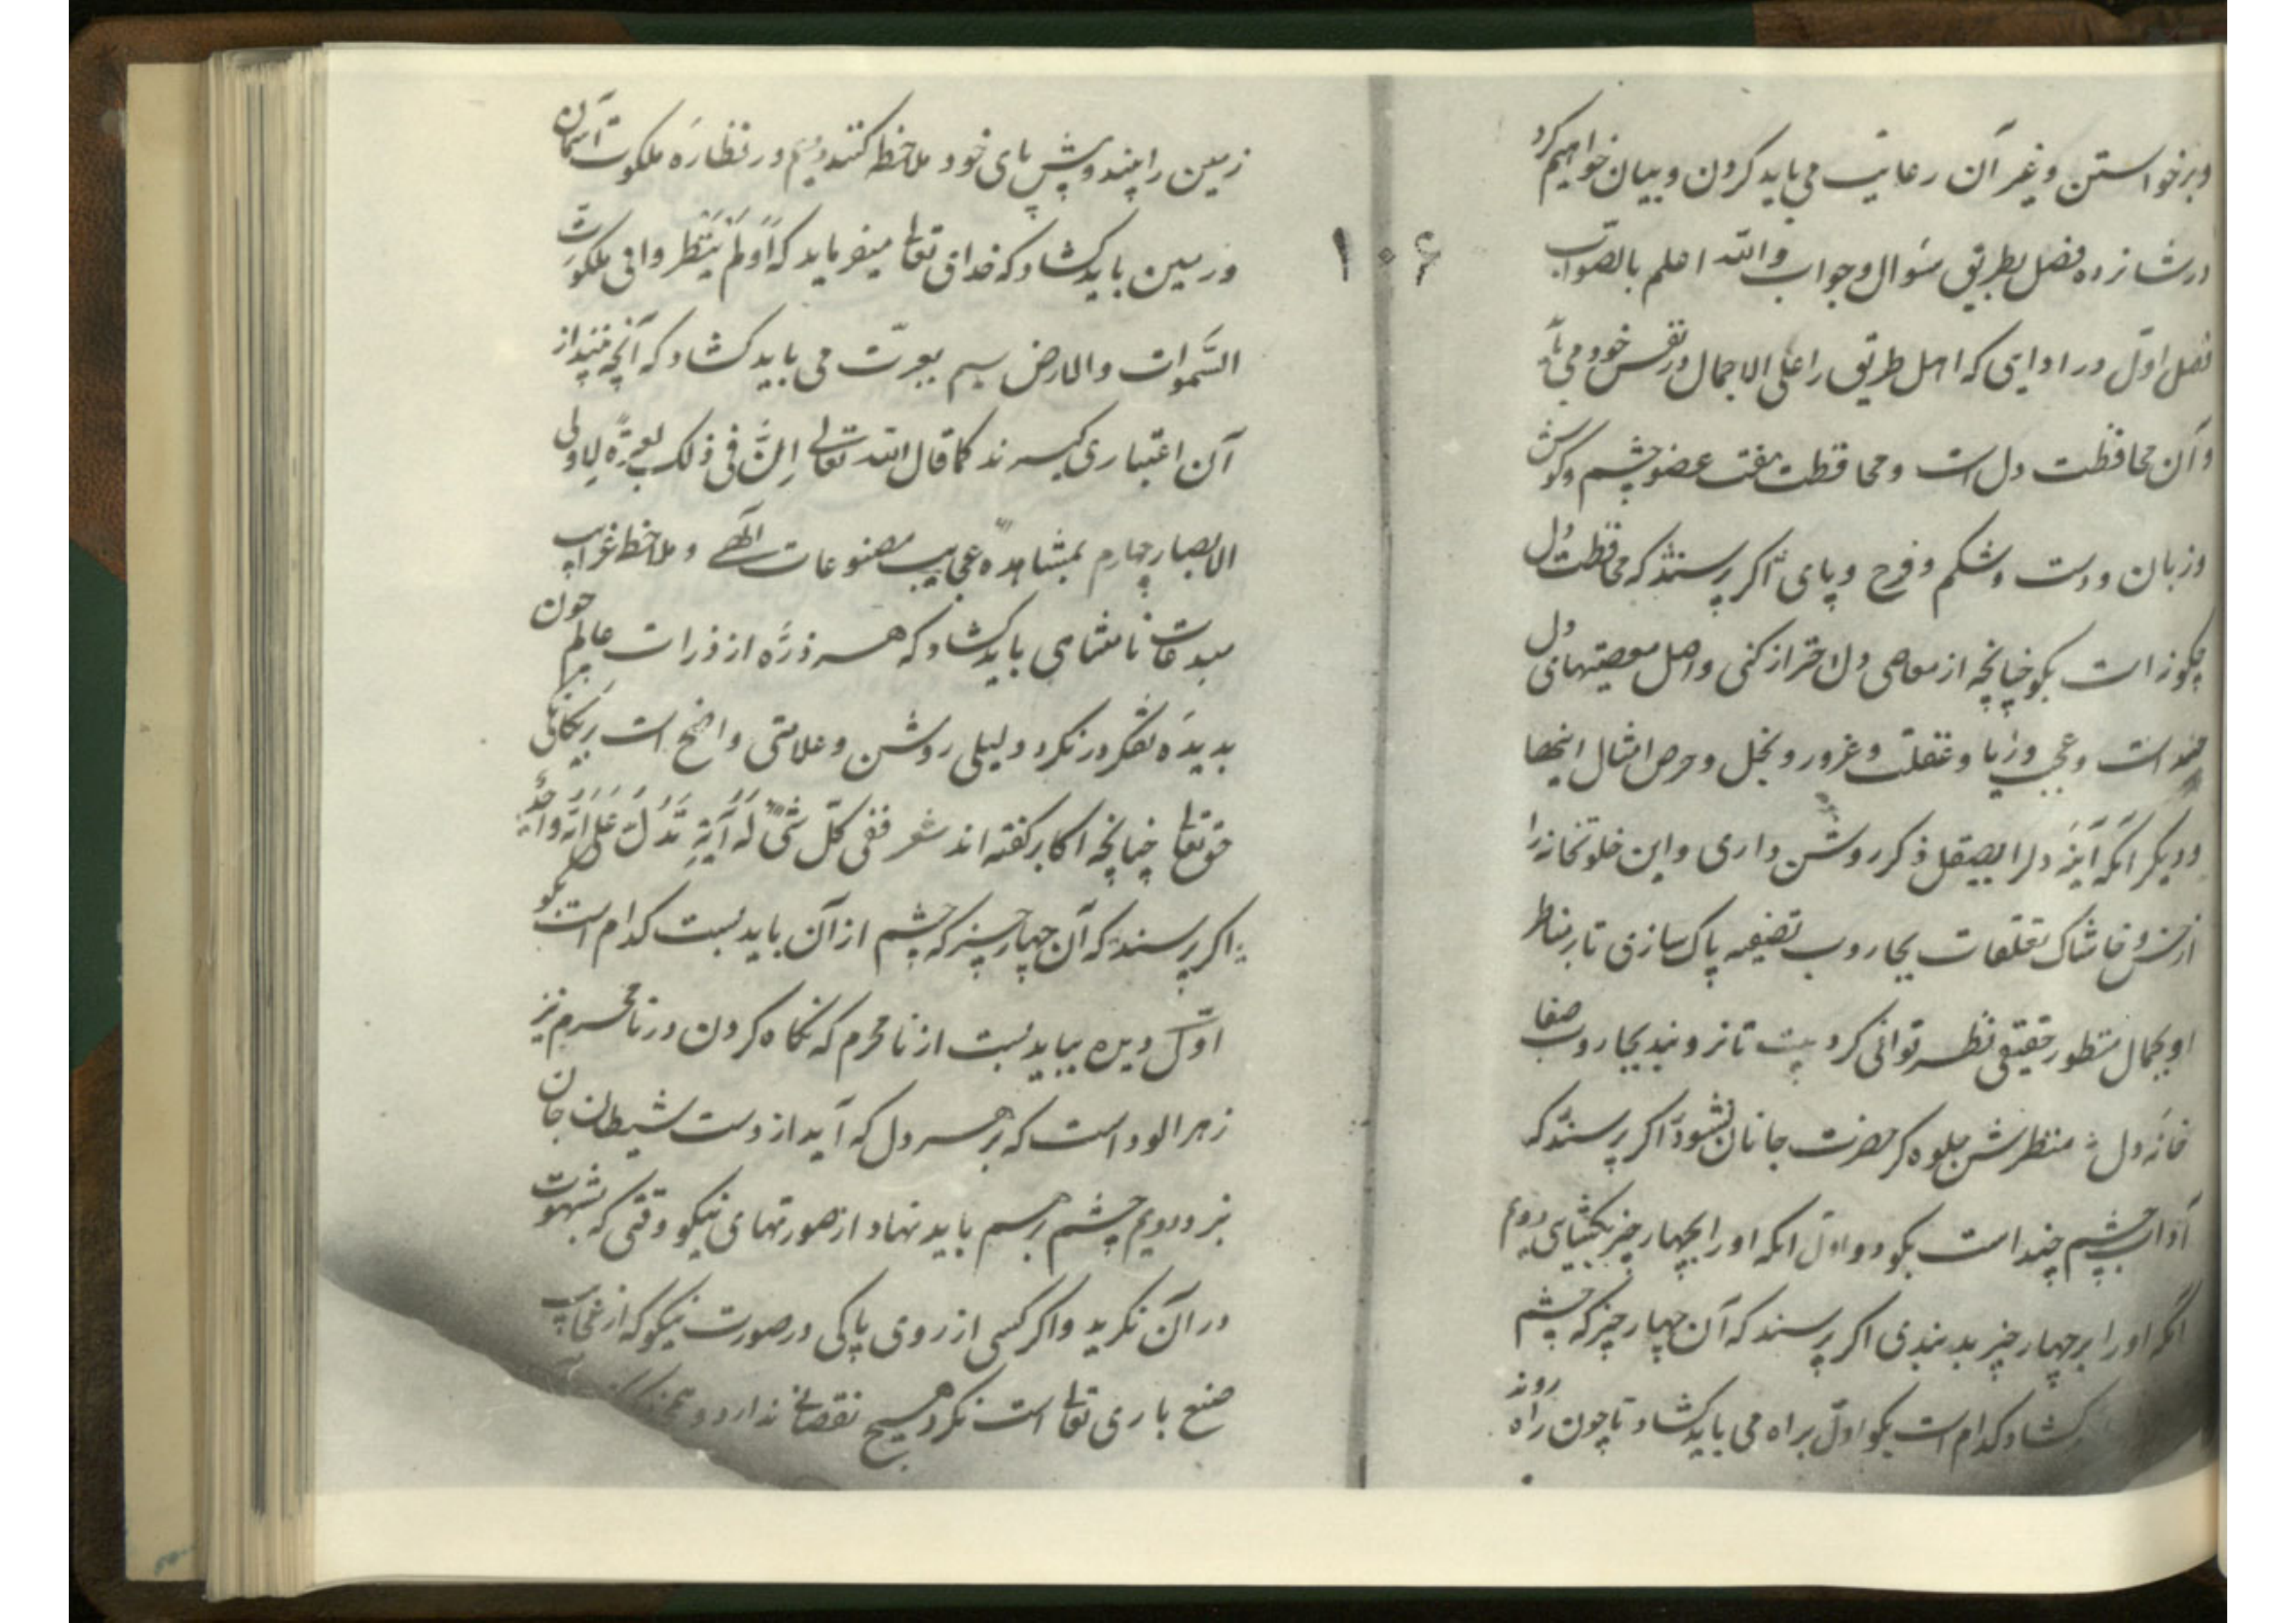 وبرخواستن وغیر آن رعایت می باید کردن و بیان خواهیم کرد
در شانزده فصل بطریق سؤال و جواب والله اعلم بالصواب
فصل اول در ادابی که اهل طریق را علی الاجمال در نفس خود می باید
و آن محافظت دل است و محافظت هفت عضو چشم و کوش
و زبان و دست و شکم و فرج و پای اکر پرسند که محافظت دل
چکونه است بکو چنانچه از معاصی دل احتراز کنی و اصل معصیتهای دل
حسد است و عجب و ریا و غفلت و غرور و بخل و حرص امثال اینها
و دیکر آنکه آینهٔ دلرا بصیقل ذکر روشن داری و این خلوتخانه را
از خس و خاشاک تعلقات بجاروب تصفیه پاک سازی تا بر مناظر
او بجمال منظور حقیقی نظر توانی کرد بیت تا نروبند بجاروب صفا
خانهٔ دل منظرش جلوه کر حضرت جانان نشود اکر پرسند که
آداب چشم چند است بکو دو اول آنکه او را بچهار چیز بکشای دویم
آنکه او را بر چهار چیز بدبندی اکر پرسند که آن چهار چیز که چشم
کشاد کدام است بکو اول براه می باید کشاد تا چون راه روند
۱۰۶
زمین را بینند و پیش پای خود ملاحظه کنند دویم در نظارهٔ ملکوت آسمان
و زمین باید کشاد که خدای تعالی میفرماید که اَوَلَمْ یَنْظُروا فی ملکوت
السَّموات والارض سیم بعبرت می باید کشاد که آنچه بینند از
آن اعتباری کیرند کما قال الله تعالی اِنَّ فی ذلک لعبرةً لاولی
الابصار چهارم بمشاهدهٔ عجایب مصنوعات آلهی و ملاحظه غرایب
مبدعات نامتناهی باید کشاد که هر ذرّه از ذرات عالم چون
بدیدهٔ تفکر در نکرد دلیلی روشن و علامتی واضح است بر یکانکی
حق تعالی چنانچه اکابر کفته اند شعر ففی کلّ شیء لَهُ آیَةٌ تَدُلُّ عَلی اَنَّهُ واحِدٌ
اکر پرسند که آن چهار چیز که چشم از آن باید بست کدام است بکو
اوّل دیده بباید بست از نامحرم که نکاه کردن در نامحرم تیر
زهرالود است که بر هر دل که آید از دست شیطان جان
نبرد دویم چشم برهم باید نهاد از صورتهای نیکو وقتی که بشهوت
در آن نکرید و اکر کسی از روی پاکی در صورت نیکو که از عجایب
صنع باری تعالی است نکرد هیچ نقصانی ندارد و